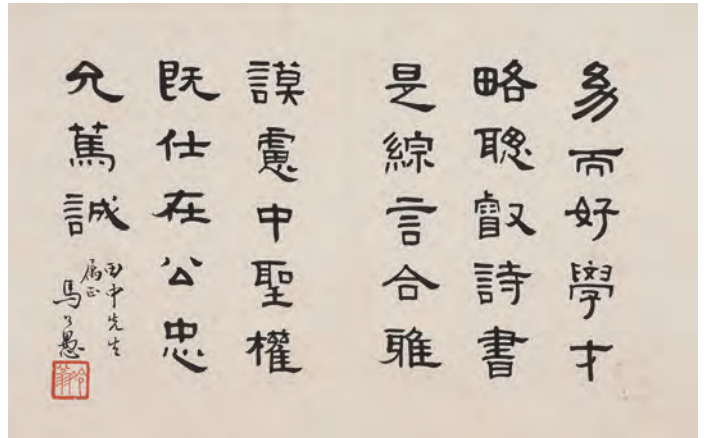 幼而好學才
略聰叡詩書
是綜言合雅
謨慮中聖權
既仕在公忠
允篤誠
田中先生
属正
馬公愚